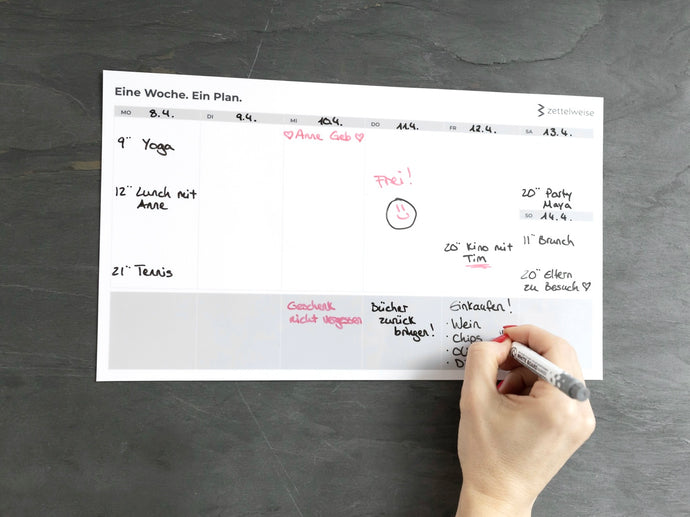 Eine Woche. Ein Plan.
zettelweise
MO 8.4. DI 9.4. MI 10.4. DO 11.4. FR 12.4. SA 13.4.
♡Anne Geb♡
9°° Yoga
Frei!
12°° Lunch mit
Anne
20°° Party
Maya
SO 14.4.
11°° Brunch
20°° Kino mit
Tim
21°° Tennis
20°° Eltern
zu Besuch♡
Geschenk
nicht vergessen
Bücher
zurück
bringen!
Einkaufen!
· Wein
· Chips